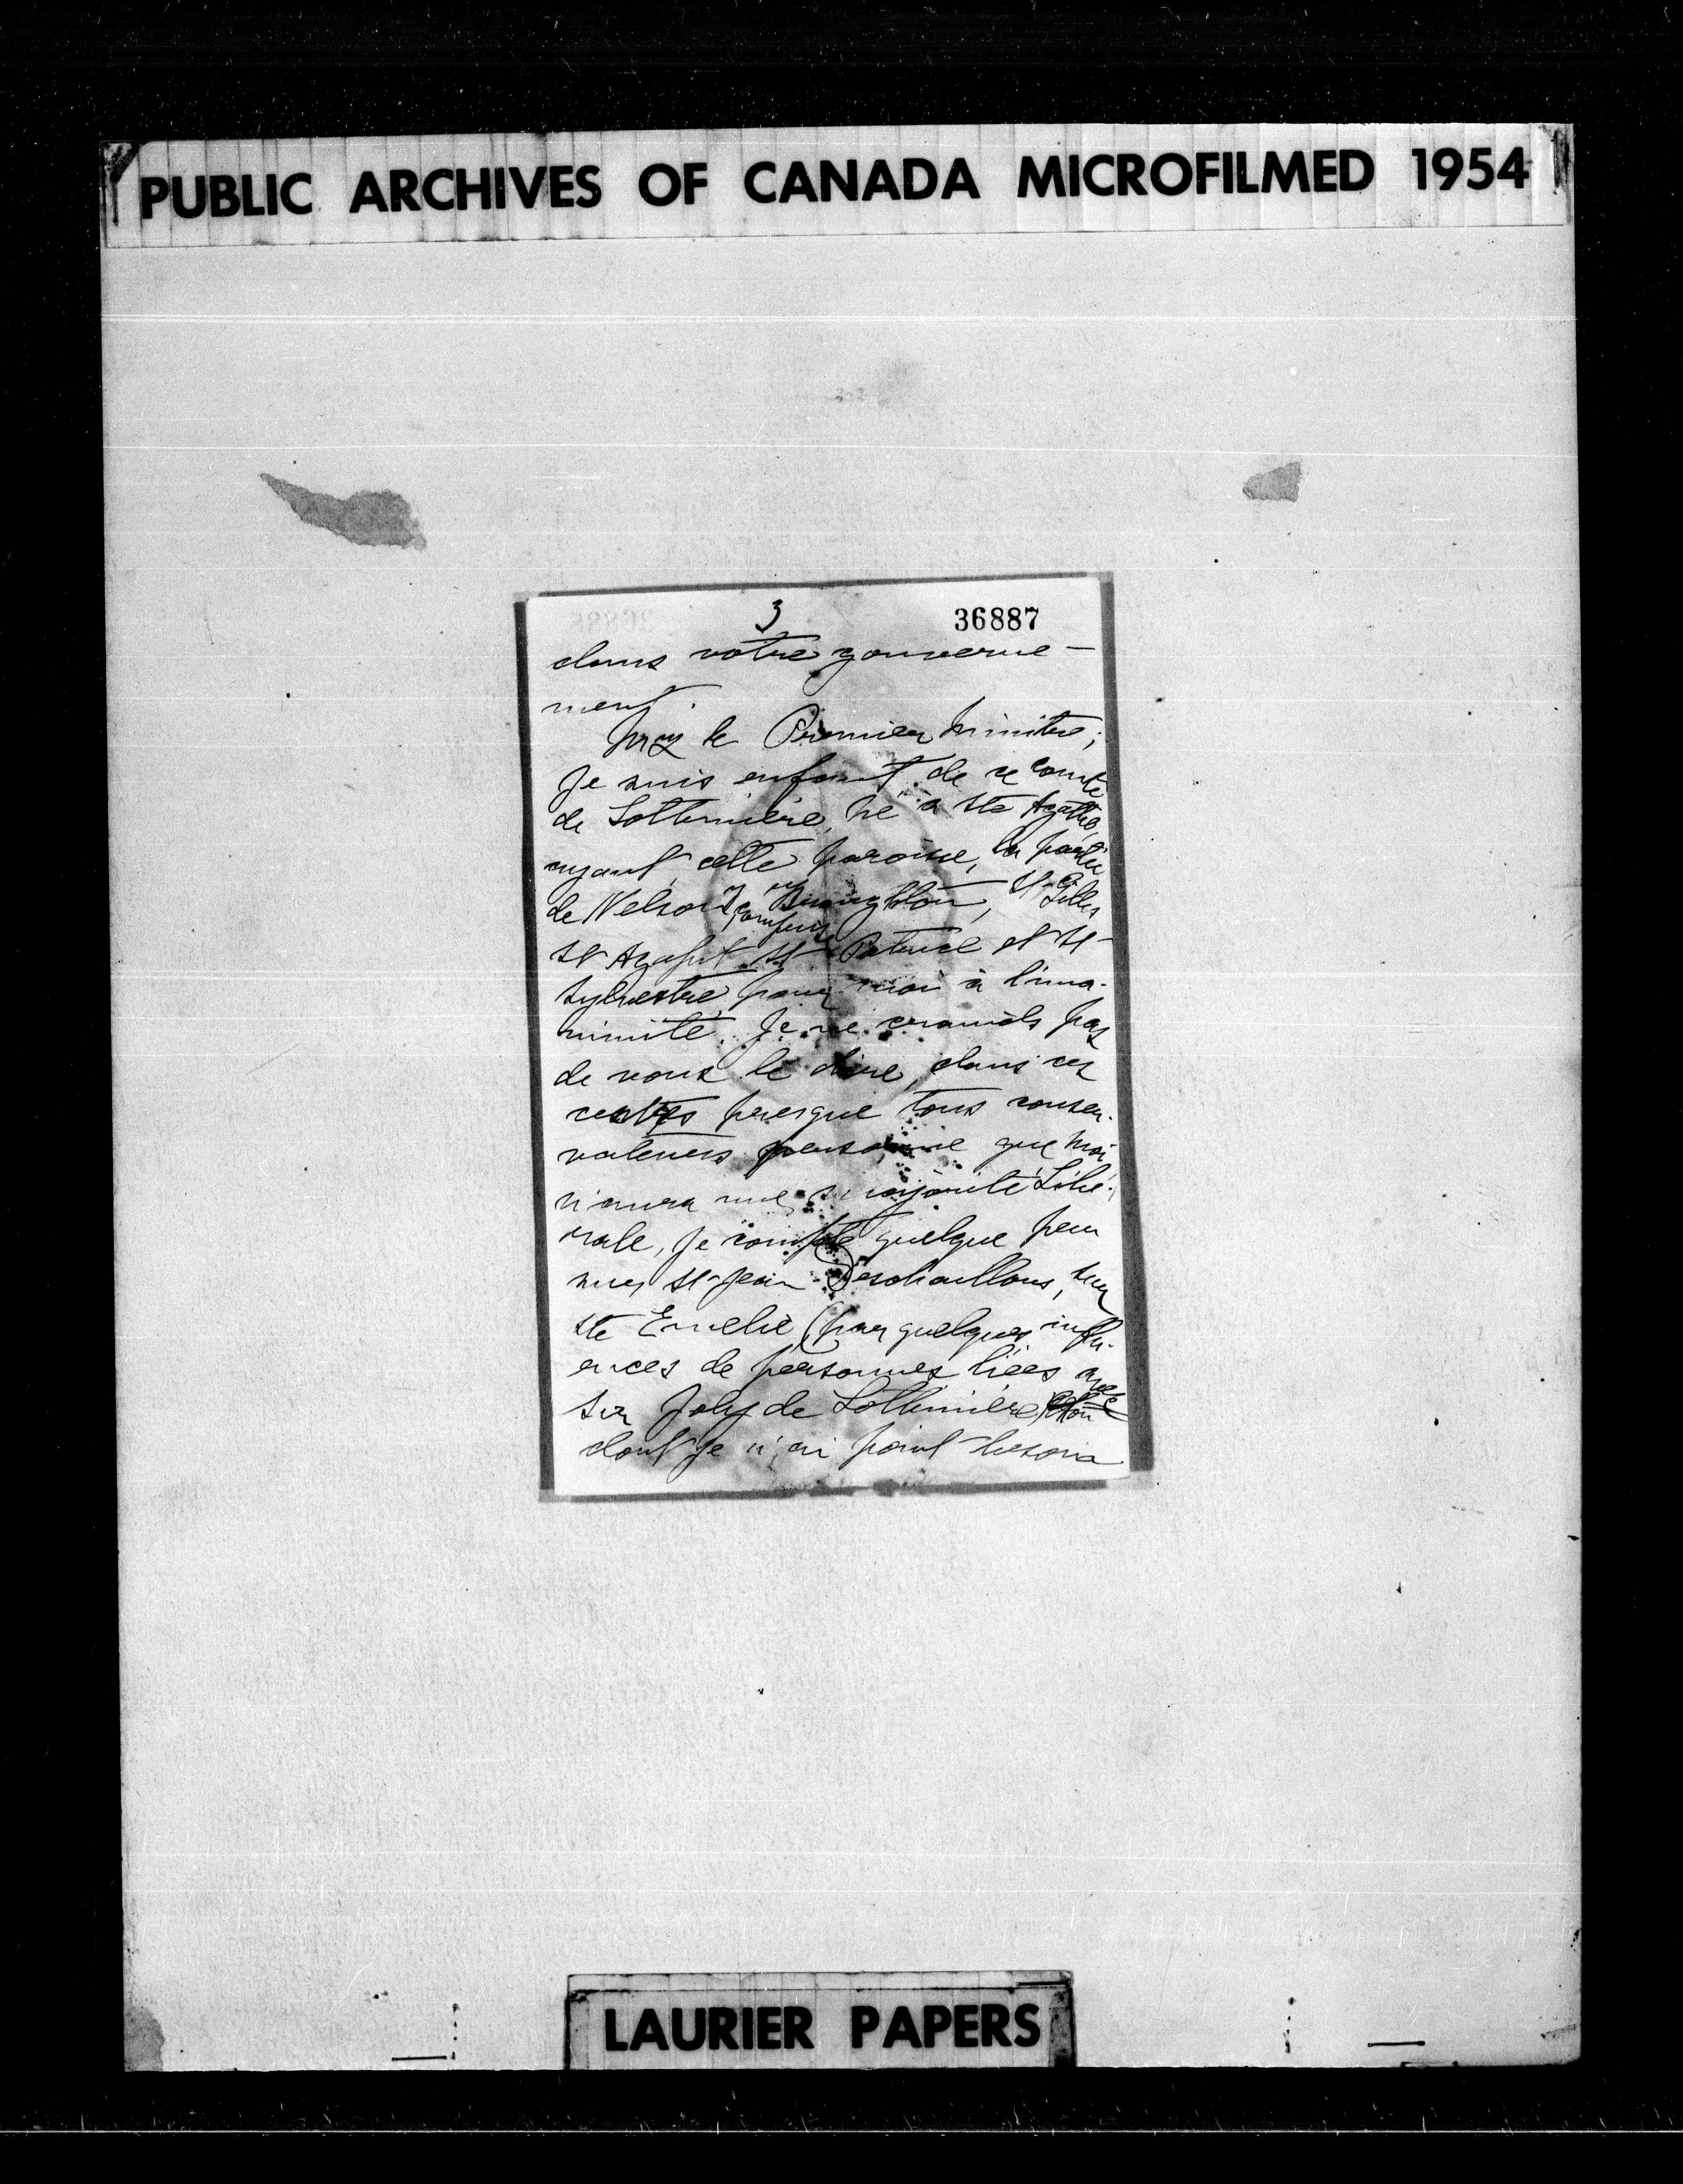 PUBLIC ARCHIVES OF CANADA MICROFILMED 1954
3 36887
dans votre gouverne-
ment.
Mr le Premier Ministre;
Je suis enfant de ce comté
de Lotbinière, né à Ste Agathe
ayant cette paroisse, la partie
de Nelson, St Gilles
St Agapit St Patrice et St-
Sylvestre, pour moi à l'una-
nimité. Je ne crainds pas
de vous le dire, dans ces
centres presque tous conser-
vateurs personne que moi
n'aura une majorité Libé-
rale, je compte quelque peu
sur St-Jean Deschaillons, sur
Ste Emelie (par quelques influ-
ences de personnes liées avec
Sir Joly de Lotbinière)
dont je n'ai point besoin
LAURIER PAPERS